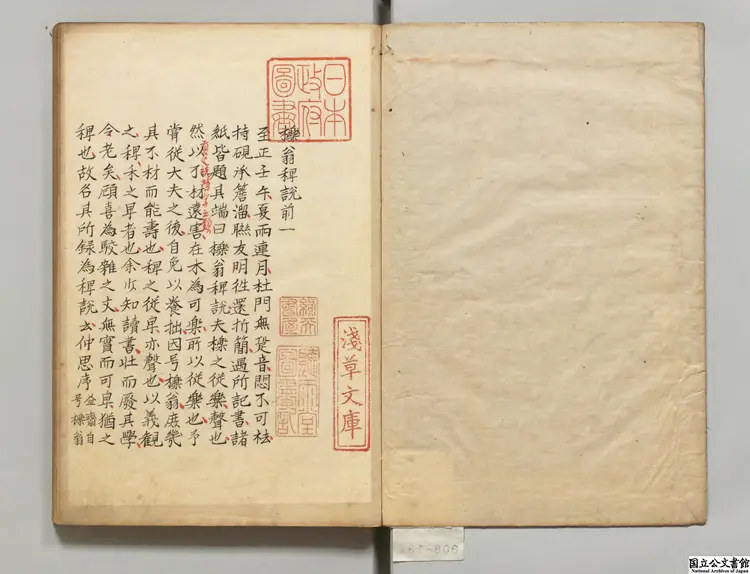 日本
政府
圖書
淺草文庫
櫟翁稗說前一
至正壬午夏雨連月杜門無跫音悶不可袪
持硯承簷溜聯友明徃還折簡遇所記書諸
紙背題其端曰櫟翁稗說夫櫟之從樂聲也
然以不材遠害在木為可樂所以從樂也予
甞從大夫之後自免以養拙因号櫟翁庶幾
其不材而能壽也稗之從卑亦聲也以義觀
之稗禾之卑者也余少知讀書壮而廢其學
今老矣顧喜為駁雜之文無實而可卑猶之
稗也故名其所録為稗說云仲思序
益齋自
号櫟翁
国立公文書館
National Archives of Japan